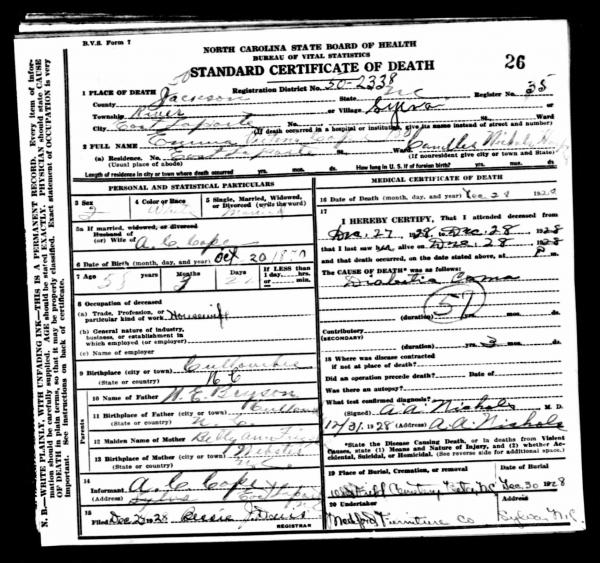 B.V.S. Form 7
NORTH CAROLINA STATE BOARD OF HEALTH
BUREAU OF VITAL STATISTICS
STANDARD CERTIFICATE OF DEATH
26
1 PLACE OF DEATH Registration District No. 50-2338 Register No. 35
County Jackson State NC
Township River or Village Sylva or
City No. St. Ward
(If death occurred in a hospital or institution, give its name instead of street and number)
2 FULL NAME Emma
(a) Residence. No. St. Ward
(Usual place of abode) (If nonresident give city or town and State)
Length of residence in city or town where death occurred yrs. mos. ds. How long in U.S. if of foreign birth? yrs. mos. ds.
PERSONAL AND STATISTICAL PARTICULARS
3 Sex F 4 Color or Race White 5 Single, Married, Widowed, or Divorced (write the word) Married
5a If married, widowed, or divorced
Husband of
(or) Wife of A. C. Cope
6 Date of Birth (month, day, and year) Oct 20 1870
7 Age 58 Years Months Days If LESS than 1 day, hrs. or min.
8 Occupation of deceased
(a) Trade, Profession, or particular kind of work Housewife
(b) General nature of industry, business, or establishment in which employed (or employer)
(c) Name of employer
9 Birthplace (city or town) Cullowhee
(State or country) N C
10 Name of Father Bryson
11 Birthplace of Father (city or town)
(State or country) N C
12 Maiden Name of Mother
13 Birthplace of Mother (city or town) Webster
(State or country)
Parents
14 Informant A. C. Cope
(Address) Sylva
15 Filed Dec 1928 J. Davis
REGISTRAR
MEDICAL CERTIFICATE OF DEATH
16 Date of Death (month, day, and year) Dec 28 1928
17
I HEREBY CERTIFY, That I attended deceased from
Dec. 27, 1928, Dec. 28 1928
that I last saw alive on Dec. 28 1928
and that death occurred, on the date stated above, at P m.
The CAUSE OF DEATH* was as follows:
Diabetic Coma
57
(duration) yrs. mos. ds.
Contributory
(SECONDARY)
(duration) yrs. 3 mos. ds.
18 Where was disease contracted
if not at place of Death?
Did an operation precede death? Date of
Was there an autopsy?
What test confirmed diagnosis?
(Signed) A. A. Nichols M. D.
12/31, 1928 (Address) A. A. Nichols
*State the Disease Causing Death, or in deaths from Violent Causes, state (1) Means and Nature of Injury, and (2) whether Accidental, Suicidal, or Homicidal. (See reverse side for additional space.)
19 Place of Burial, Cremation, or removal Date of Burial
NC Dec 30 1928
20 Undertaker
Medford Furniture Co Sylva N.C.
N. B.—WRITE PLAINLY, WITH UNFADING INK—THIS IS A PERMANENT RECORD. Every item of information should be carefully supplied. AGE should be stated EXACTLY. PHYSICIAN should state CAUSE OF DEATH in plain terms, so that it may be properly classified. Exact statement of OCCUPATION is very important. See instructions on back of certificate.